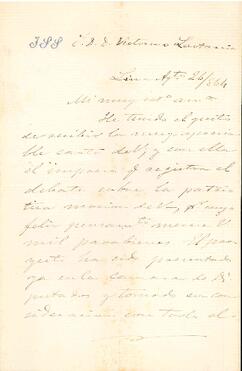 E. S. D. Victorino Lastarria
Lima Agto 26/864
Mi muy estdo amo
He tenido el gusto
de recibir la muy aprecia
ble carta de V, y con ella
el impreso q registra el
debate sobre la patrio
tica mocion de V, pr cuyo
feliz pensamto merece V
mil parabienes. El proy
ecto ha sido presentado
ya en la camara de Di
putados y tomado en con
sideracion con todo el